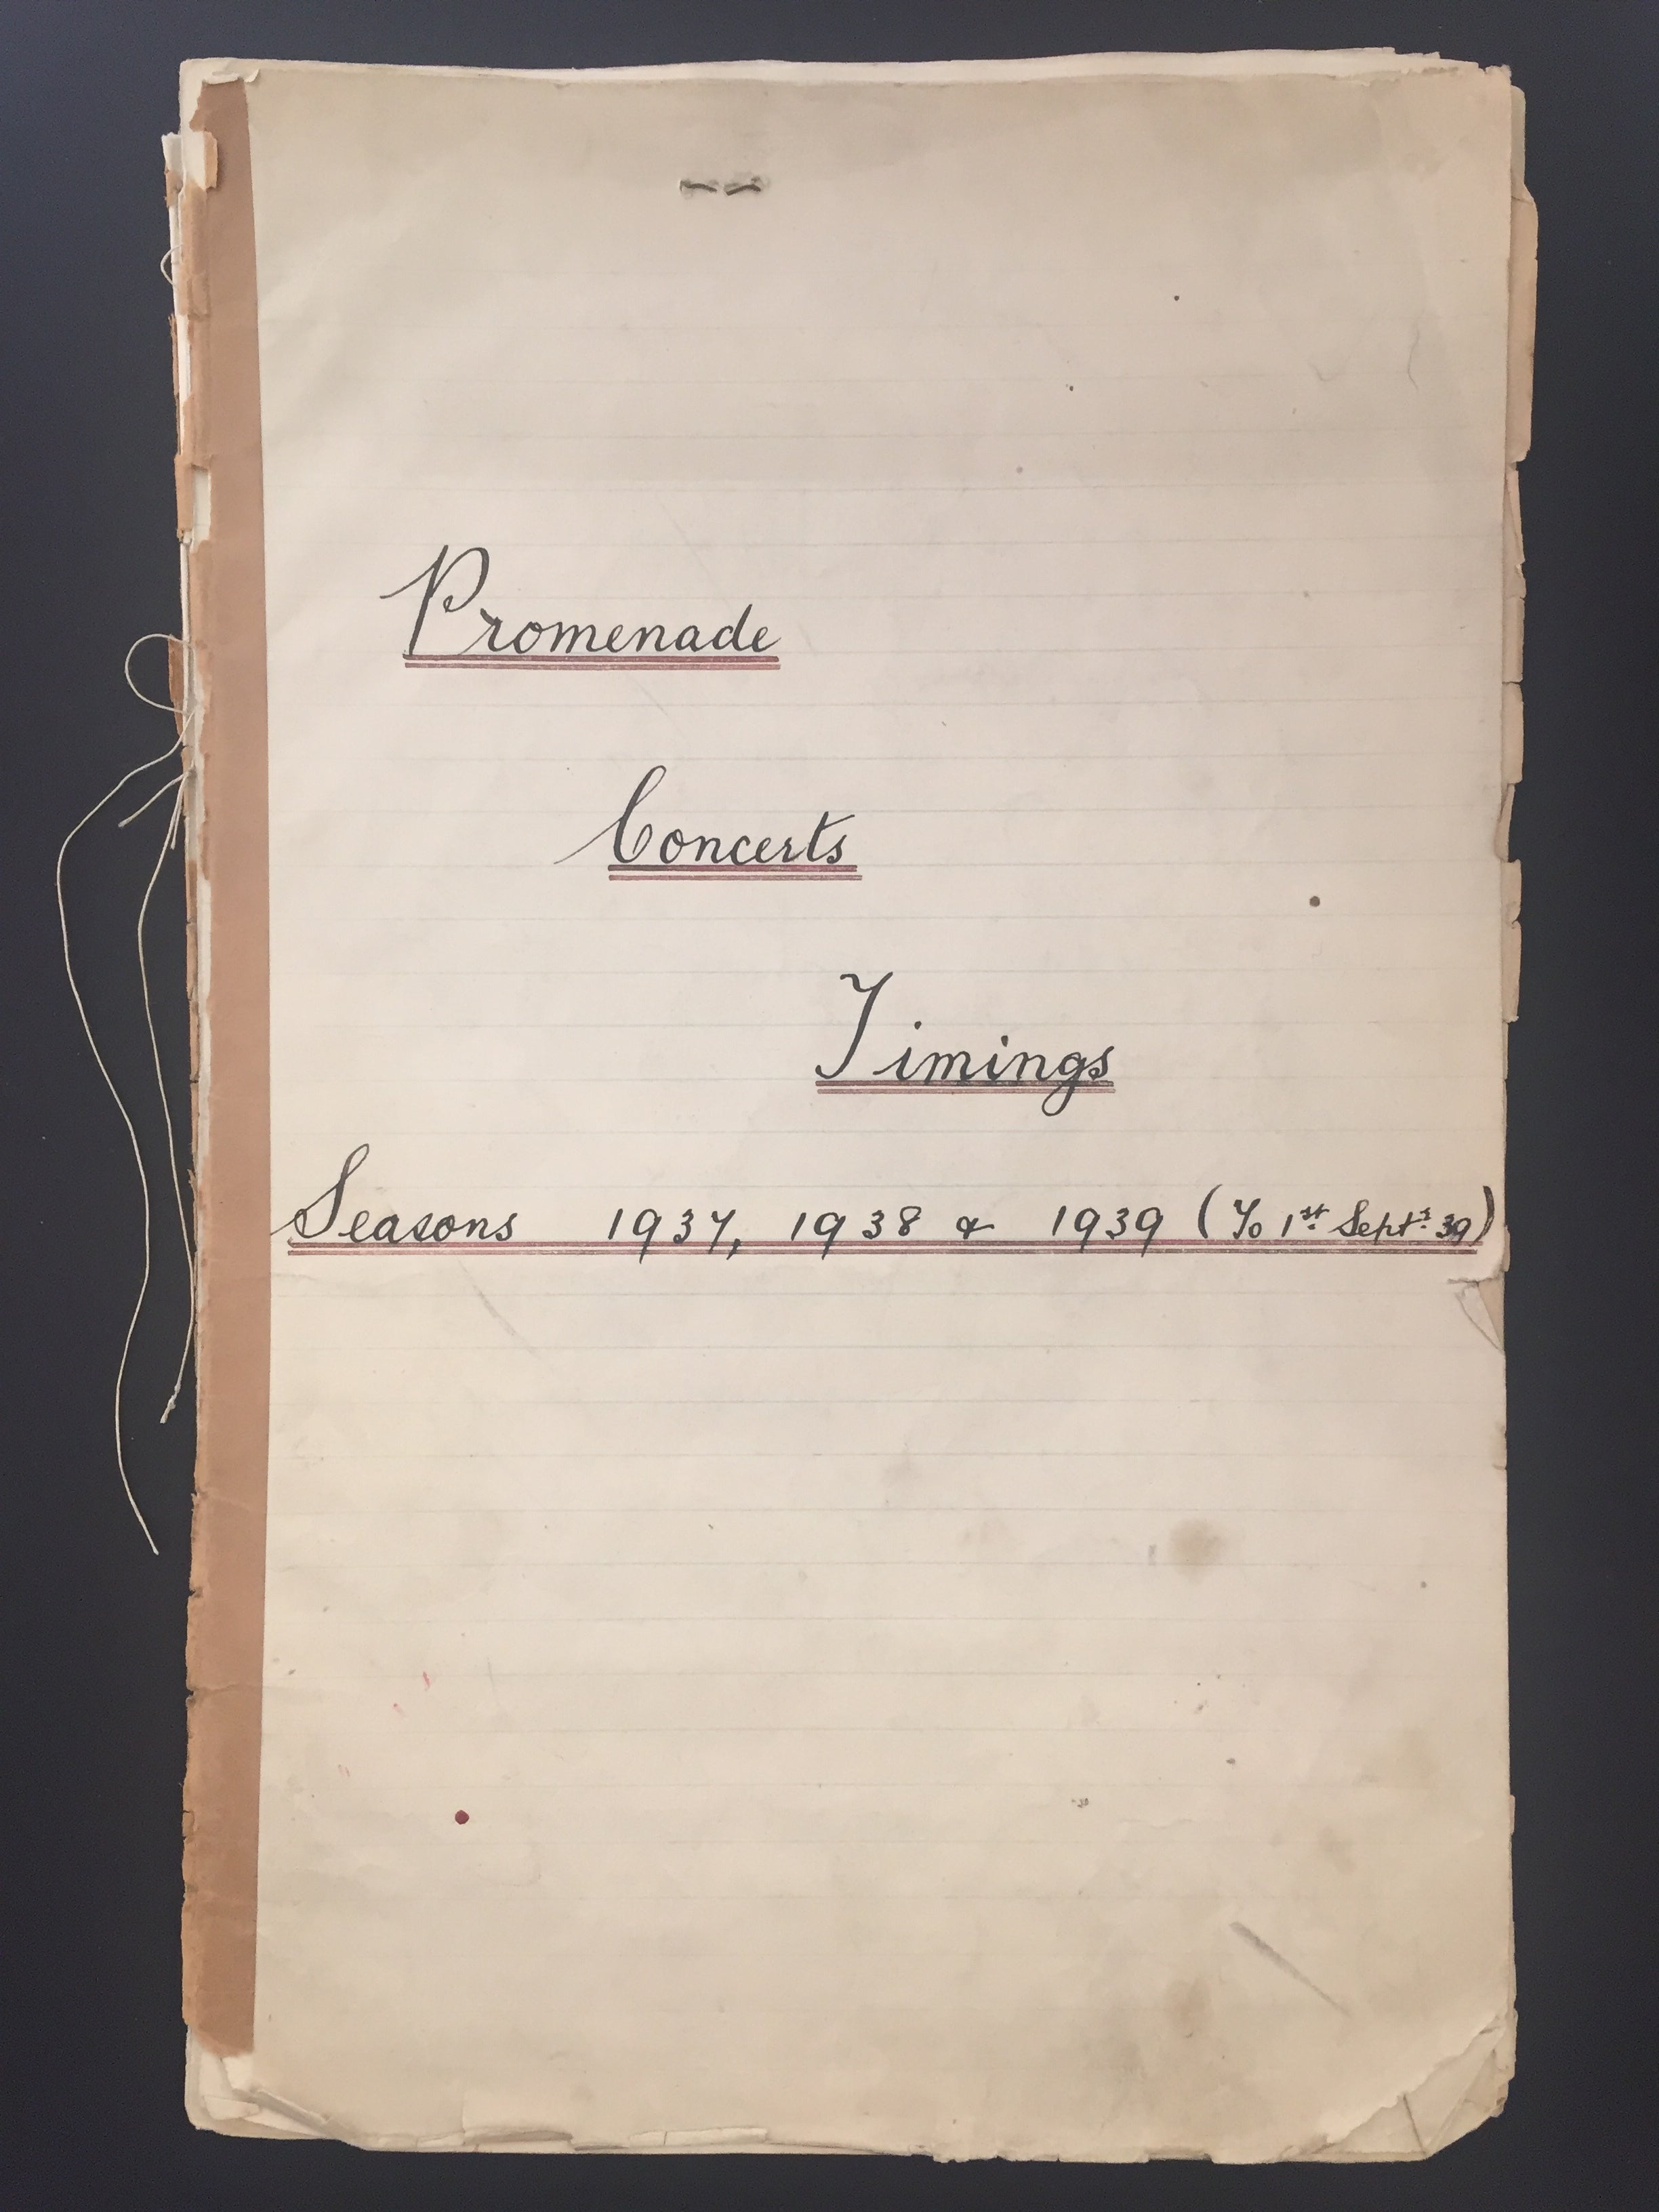 Promenade
Concerts
Timings
Seasons 1937, 1938 & 1939 (To 1st Septr. 39)